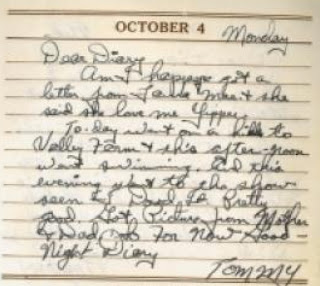 OCTOBER 4 Monday
Dear Diary
Am I happy got a
letter from Mae & she
said she love me Yippee.
To-day went on a to
Valley Farm & this after-noon
went swimming. And this
evening went to the show
seen Pretty
good. Got Picture from Mother
& Dad For Now Good
Night Diary
TOMMY